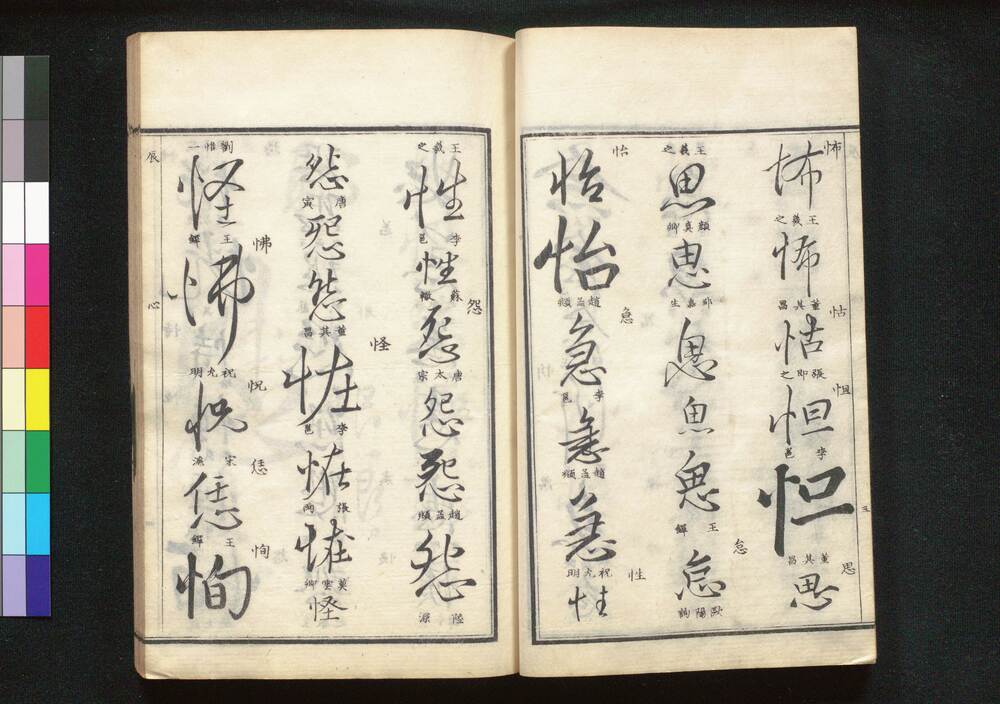 怖 怖 王羲之
怖 董其昌
怙 怙 張即之
怛 怛 李邕
怛 董其昌
思 思
王羲之 思 顏真卿
思
思
思
思 王鐸
怠 怠 歐陽詢
怡 怡
怡 趙孟頫
急 急 李邕
急 趙孟頫
急 祝允明
性 性
王羲之 性 李邕
性 蘇轍
怨 怨 唐太宗
怨
怨 趙孟頫
怨 陸
怨 唐寅
怨
怨 董其昌
怪 怪 李邕
怪 張雨
怪
怪
劉惟一 怪 王鐸
怫 怫 祝允明
怳 怳 宋濂
恁 恁 王鐸
恂 恂
辰
心